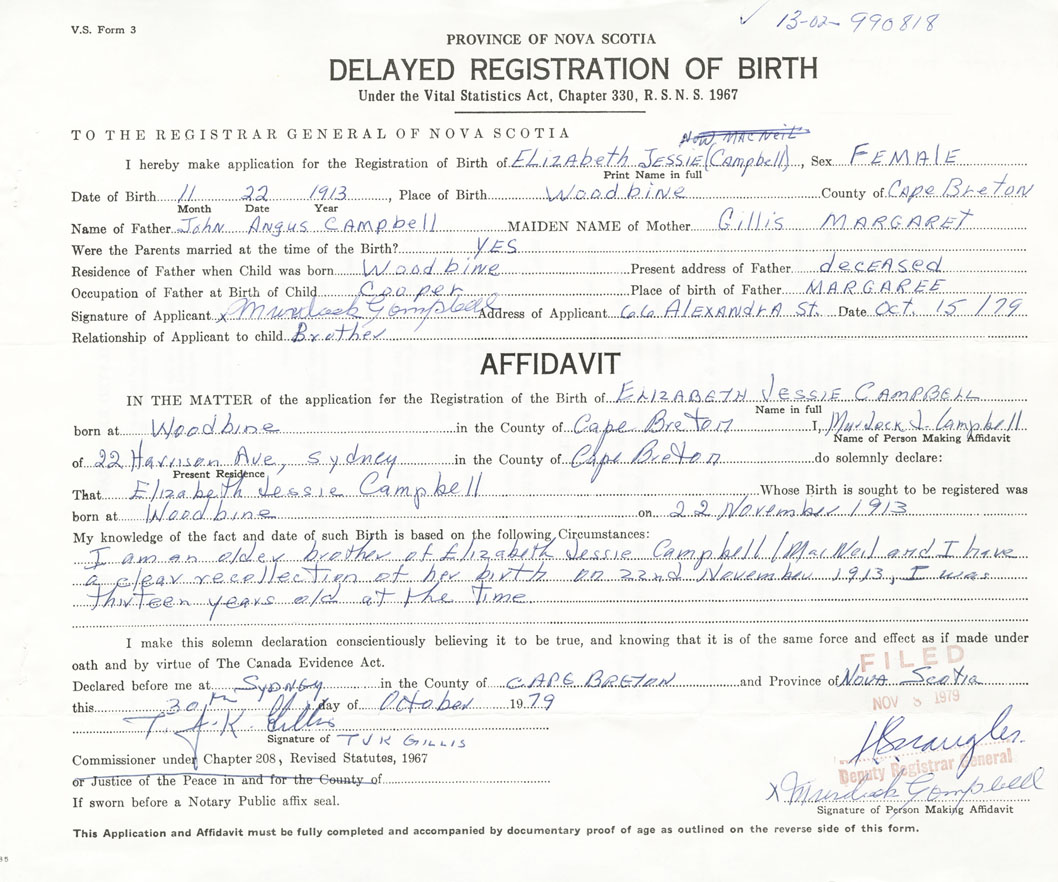 V.S. Form 3
✓ 13-02-990818
PROVINCE OF NOVA SCOTIA
DELAYED REGISTRATION OF BIRTH
Under the Vital Statistics Act, Chapter 330, R. S. N. S. 1967
TO THE REGISTRAR GENERAL OF NOVA SCOTIA
NOW MACNEIL
I hereby make application for the Registration of Birth of ELIZABETH JESSIE (Campbell), Sex FEMALE
Print Name in full
Date of Birth 11 22 1913, Place of Birth Woodbine County of Cape Breton
Month Date Year
Name of Father John Angus Campbell MAIDEN NAME of Mother Gillis MARGARET
Were the Parents married at the time of the Birth? YES
Residence of Father when Child was born Woodbine Present address of Father deceased
Occupation of Father at Birth of Child Cooper Place of birth of Father MARGAREE
Signature of Applicant x Murdock J Campbell Address of Applicant 66 Alexandra St. Date Oct. 15/79
Relationship of Applicant to child Brother
AFFIDAVIT
IN THE MATTER of the application for the Registration of the Birth of ELIZABETH JESSIE CAMPBELL
Name in full
born at Woodbine in the County of Cape Breton I, Murdock J. Campbell
Name of Person Making Affidavit
of 22 Harrison Ave, Sydney in the County of Cape Breton do solemnly declare:
Present Residence
That Elizabeth Jessie Campbell Whose Birth is sought to be registered was
born at Woodbine on 22 November 1913
My knowledge of the fact and date of such Birth is based on the following Circumstances:
I am an older brother of Elizabeth Jessie Campbell/MacNeil and I have
a clear recollection of her birth on 22nd November 1913, I was
thirteen years old at the time
I make this solemn declaration conscientiously believing it to be true, and knowing that it is of the same force and effect as if made under
oath and by virtue of The Canada Evidence Act.
FILED
Declared before me at Sydney in the County of CAPE BRETON and Province of Nova Scotia
this 30th day of October 1979
NOV 5 1979
T. J. K. Gillis
Signature of TJK GILLIS
Commissioner under Chapter 208, Revised Statutes, 1967
Deputy Registrar General
or Justice of the Peace in and for the County of
x Murdock J Campbell
If sworn before a Notary Public affix seal.
Signature of Person Making Affidavit
This Application and Affidavit must be fully completed and accompanied by documentary proof of age as outlined on the reverse side of this form.